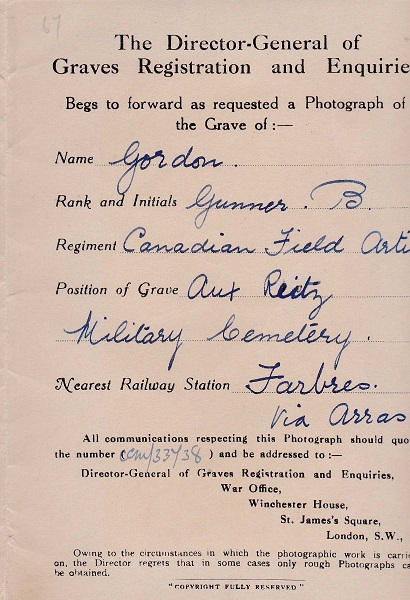 67
The Director-General of
Graves Registration and Enquirie
Begs to forward as requested a Photograph of
the Grave of :—
Name Gordon.
Rank and Initials Gunner. B.
Regiment Canadian Field Arti
Position of Grave Aux Reitz
Military Cemetery.
Nearest Railway Station Farbres.
Via Arras
All communications respecting this Photograph should quo
the number (  /33738 ) and be addressed to :—
Director-General of Graves Registration and Enquiries,
War Office,
Winchester House,
St. James's Square,
London, S.W.,
Owing to the circumstances in which the photographic work is carrie
on, the Director regrets that in some cases only rough Photographs ca
be obtained.
"COPYRIGHT FULLY RESERVED"